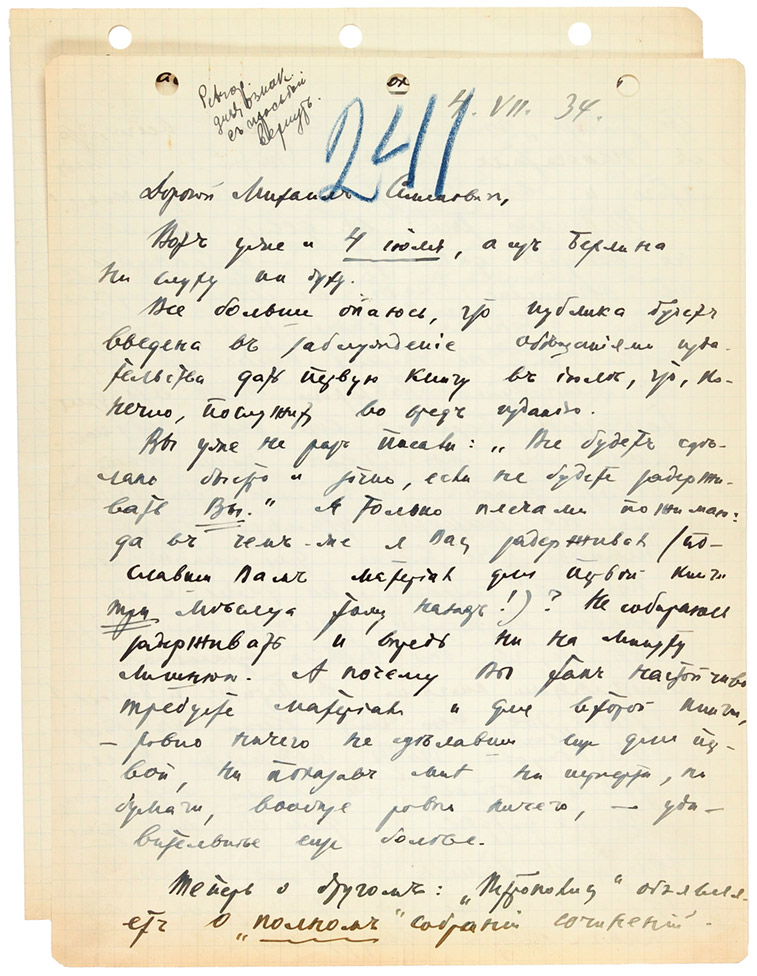 для ознак.
съ просьбой
вернуть.
241
4. VII. 34.
Дорогой Михаилъ
Вотъ уже и 4 июля, а изъ Берлина
ни слуху ни духу.
Все больше опаюсь, что публика будетъ
введена въ заблужденіе обѣщаніями изда-
тельства дать первую книгу въ іюлѣ, что, ко-
нечно, послужитъ во вредъ изданію.
Вы уже не разъ писали: „Все будетъ сдѣ-
лано быстро и точно, если не будете задержи-
вать Вы." Я только плечами пожимаю:
да въ чемъ-же я Васъ задерживалъ (по-
славши Вамъ матеріалъ для первой книги
три мѣсяца тому назадъ!)? Не собираюсь
задерживать и впредь ни на минуту
лишнюю. А почему Вы такъ настойчиво
требуете матеріала и для второй книги,
– ровно ничего не сдѣлавши еще для пер-
вой, не показавъ мнѣ ни шрифта, ни
бумаги, вообще ровно ничего, – уди-
вительнѣе еще болѣе.
Теперь о другомъ: „Петрополисъ" объявля-
етъ о „полномъ" собраніи сочиненій.